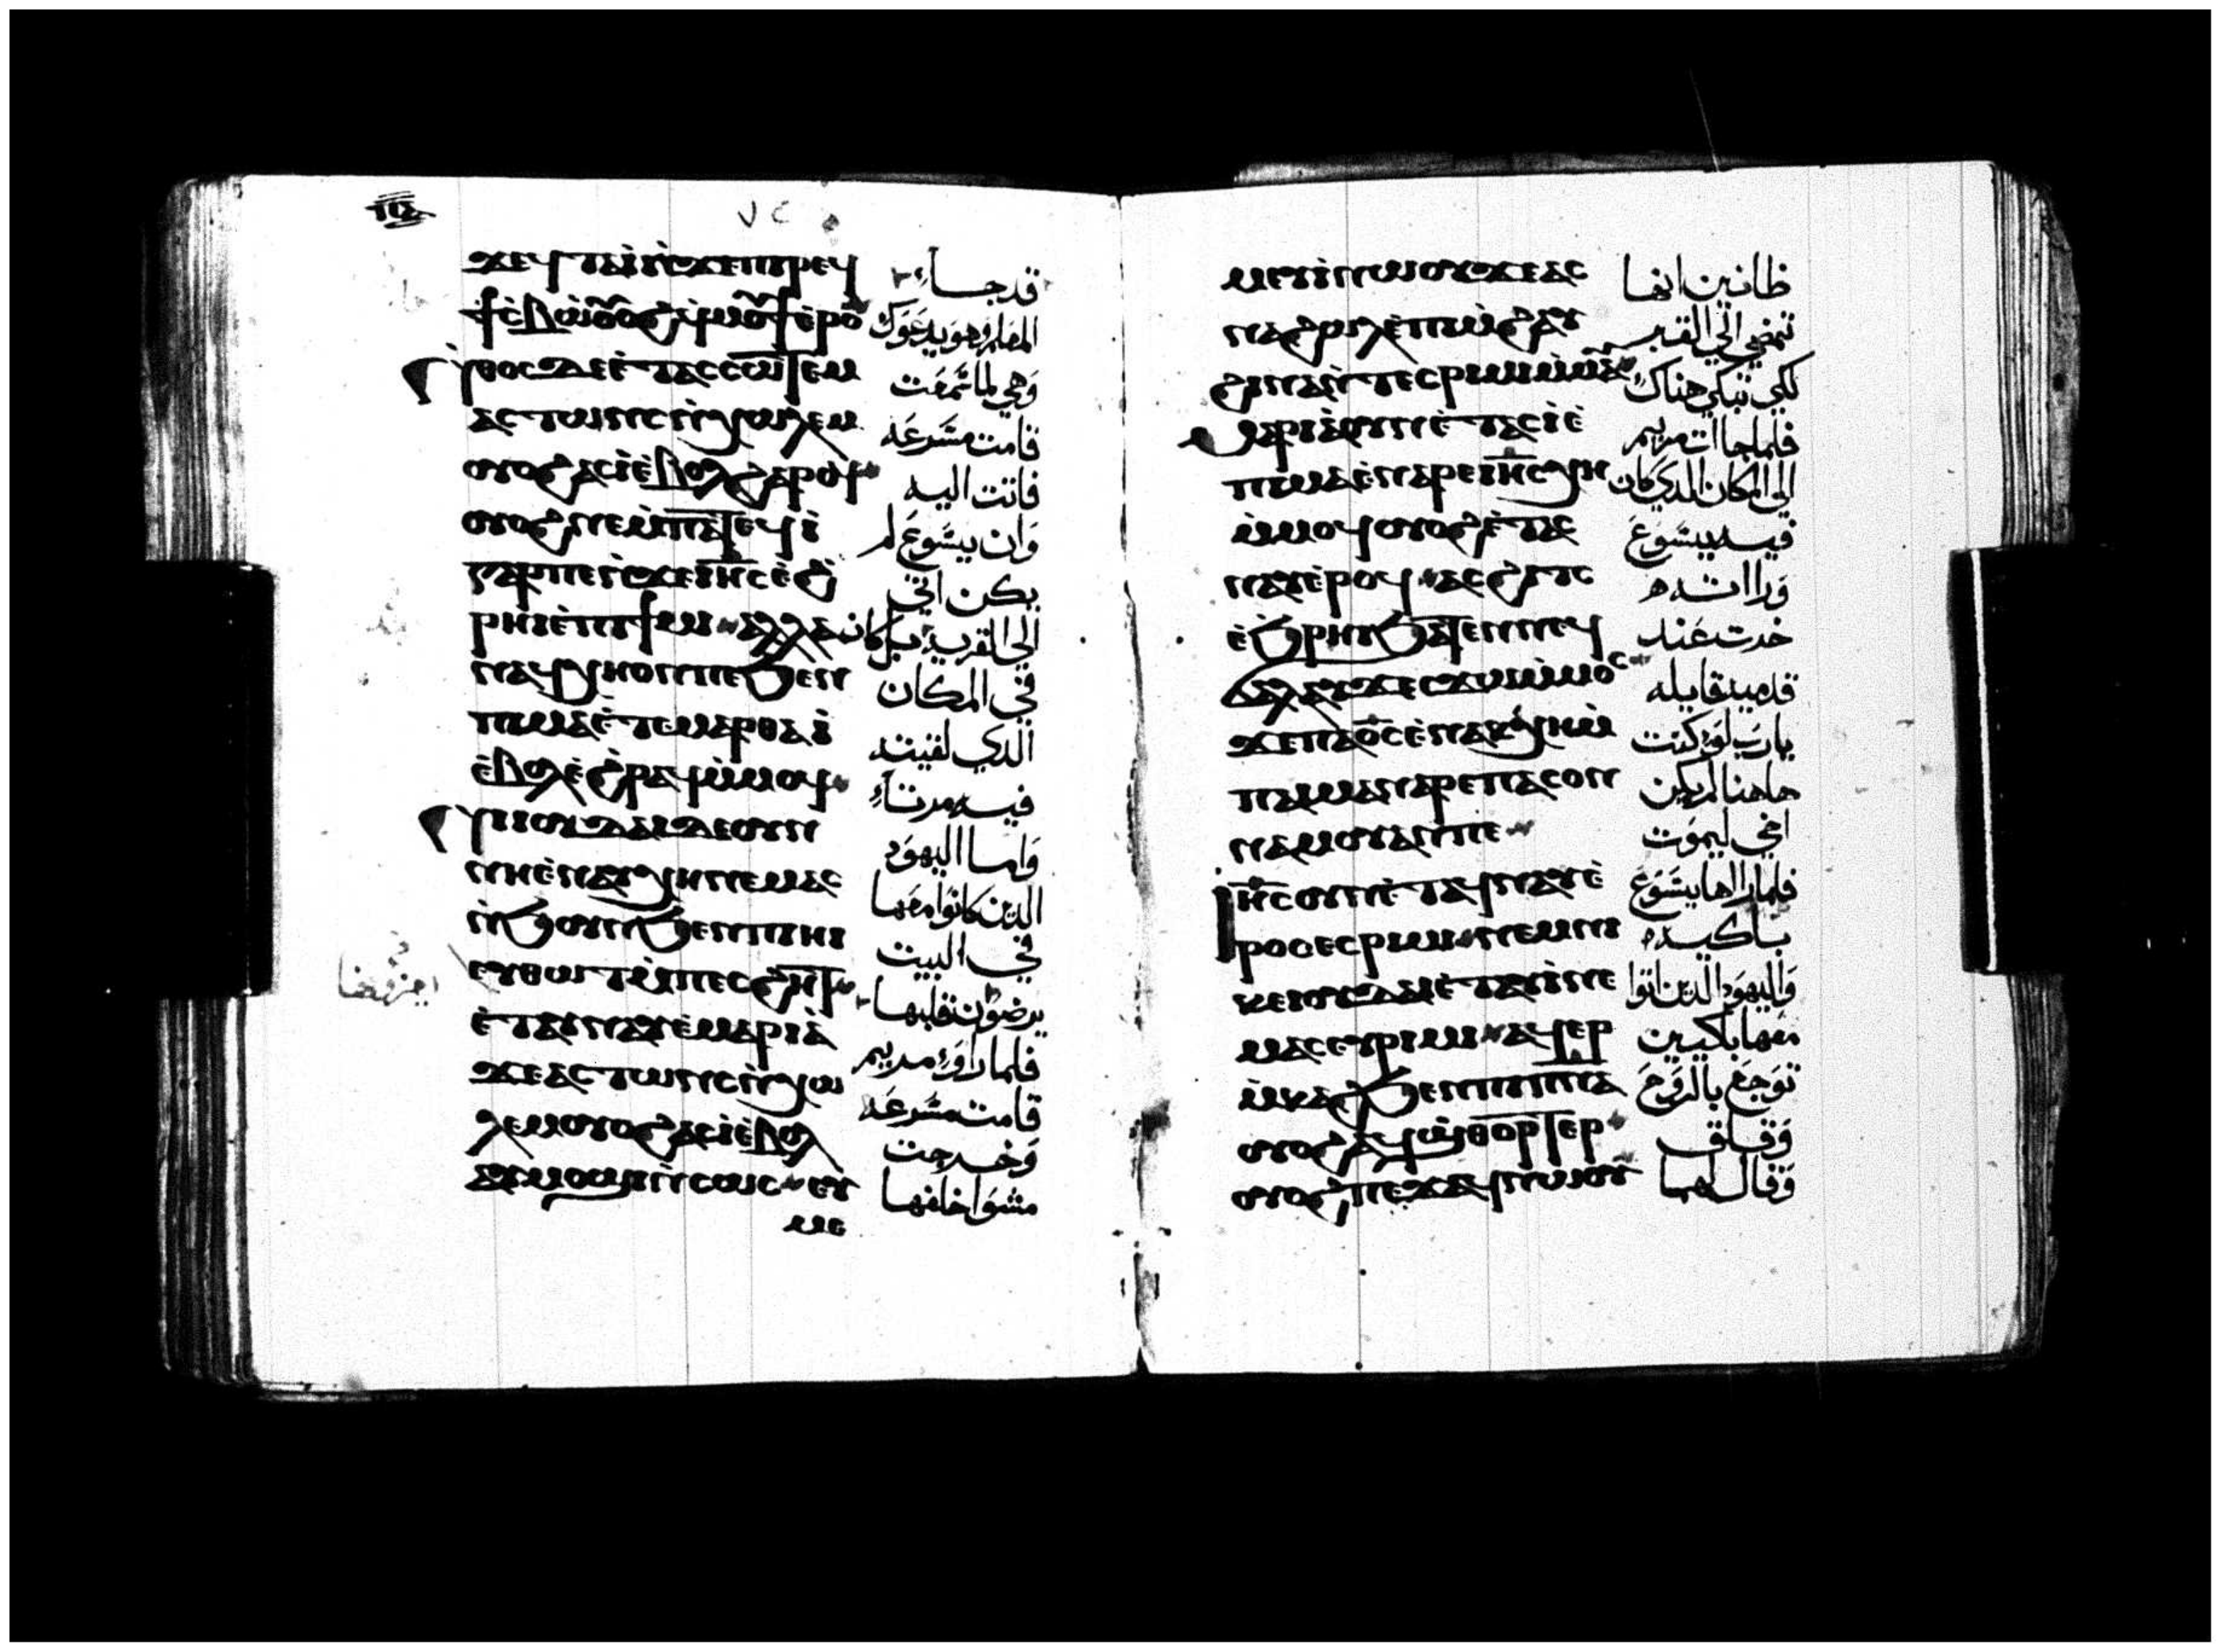 ⲡⲋ
٧٤
ϫⲉϥⲧⲁⲓⲛ̀ϫⲉⲡⲓⲣⲉϥ قد جاء
ϯⲥ̀ⲃⲱⲟⲩⲟϩϥ̀ⲙⲟⲩϯⲉ̀ⲣⲟ المعلم وهو يدعوك
ⲛ̀ⲑⲟⲥⲇⲉⲉ̀ⲧⲁⲥⲥⲱⲧⲉⲙ وهي لما سمعت
ⲁⲥⲧⲱⲛⲥⲛ̀ⲭⲱⲗⲉⲙ قامت مسرعه
ⲟⲩⲟϩⲁⲥⲓ̀ⲉ̀ⲃⲟⲗϩⲁⲣⲟϥ فاتت اليه
ⲟⲩⲟϩⲛⲉⲙ̀ⲡⲁⲧⲉϥⲓ̀ وان يسوع لم
ⲅⲁⲣⲡⲉⲛ̀ϫⲉⲓⲏⲥⲉ̀ϧ̀ يكن اتي
ⲣⲏⲓⲉ̀ⲡⲓϯⲙⲓ ⲁⲗⲗⲁ الى القريه بل كان
ⲛⲁϥⲭⲏⲟⲛⲡⲉϧⲉⲛ في المكان
ⲡⲓⲙⲁⲉ̀ⲧⲉⲙⲁⲣⲑⲁⲓ̀ الدي لقيته
ⲉ̀ⲃⲟⲗⲉ̀ϩ̀ⲣⲁϥⲙ̀ⲙⲟϥ فيه مرتاء
ⲛ̀ⲓⲟⲩⲇⲁⲓⲇⲉⲟⲩⲛ واما اليهود
ⲛⲏⲉ̀ⲛⲁⲩⲭⲏⲛⲉⲙⲁⲥ الدين كانوا معها
ⲛ̀ϧⲟⲩⲛϧⲉⲛⲡⲓⲏⲓ في البيت
ⲉⲩⲑⲱⲧⲙ̀ⲡⲉⲥϩⲏⲧ يرضون قلبها
ⲉ̀ⲧⲁⲩⲛⲁⲩⲉ̀ⲙⲁⲣⲓⲁ̀ فلما راوا مريم
ϫⲉⲁⲥⲧⲱⲛⲥⲛ̀ⲭⲱ قامت مسرعه
ⲗⲉⲙⲟⲩⲟϩⲁⲥⲓ̀ⲉ̀ⲃⲟⲗ وخرجت
ⲁⲩⲙⲟϣⲓⲛ̀ⲥⲱⲥ ⲉⲩ مشوا خلفها
ⲙⲉ
ⲙⲉⲩⲓ̀ⲛⲱⲟⲩϫⲉⲁⲥ ظانين انها
ⲛⲁϩⲱⲗⲉ̀ⲡⲓⲙ̀ϩⲁⲩ تمضي الى القبر
ϩⲓⲛⲁⲛ̀ⲧⲉⲥⲣⲓⲙⲓⲙ̀ⲙⲁⲩ لكي تبكي هناك
ⲙⲁⲣⲓⲁⲟⲩⲛⲉ̀ⲧⲁⲥⲓ̀ⲉ̀ فلما جاات مريم
ⲡⲓⲙⲁⲉ̀ⲛⲁⲣⲉⲓⲏⲥⲭⲏ الى المكان الدي كان
ⲙ̀ⲙⲟϥⲟⲩⲟϩⲉ̀ⲧⲁⲥ فيه يسوع
ⲛⲁⲩⲉ̀ⲣⲟϥ ⲁⲥϩⲓⲧⲥ وراته
ⲉ̀ϧⲣⲏⲓϧⲁⲧⲉⲛⲛⲉϥ خرت عند
ϭⲁⲗⲁⲩϫⲉⲥϫⲱⲙ̀ⲙⲟⲥ قدميه قايله
ϫⲉⲡⲁⲟ̅ⲥ̅ⲉ̀ⲛⲁⲕⲭⲏⲙ̀ يارب لو كنت
ⲡⲁⲓⲙⲁⲛⲁⲣⲉⲡⲁⲥⲟⲛ هاهنا لم يكن
ⲛⲁⲙⲟⲩⲁⲛⲡⲉ اخي ليموت
ⲓⲏⲥⲟⲩⲛⲉ̀ⲧⲁϥⲛⲁⲩⲉ̀ فلما راها يسوع
ⲣⲟⲥⲉⲥⲣⲓⲙⲓ ⲛⲉⲙⲛⲓ باكيه
ⲕⲉⲓⲟⲩⲇⲁⲓⲉ̀ⲧⲁⲩⲓ̀ⲛⲉ واليهود الدين اتوا
ⲙⲁⲥⲉⲩⲣⲓⲙⲓ ⲁϥⲉⲣ معها باكيين
ⲙ̀ⲕⲁϩϧⲉⲛⲡⲓⲡⲛ̅ⲁ̅ توجع بالروح
ⲟⲩⲟϩⲁϥϣ̀ⲑⲟⲣⲧⲉⲣ وقلق
ⲟⲩⲟϩⲡⲉϫⲁϥⲛⲱⲟⲩ وقال لهما